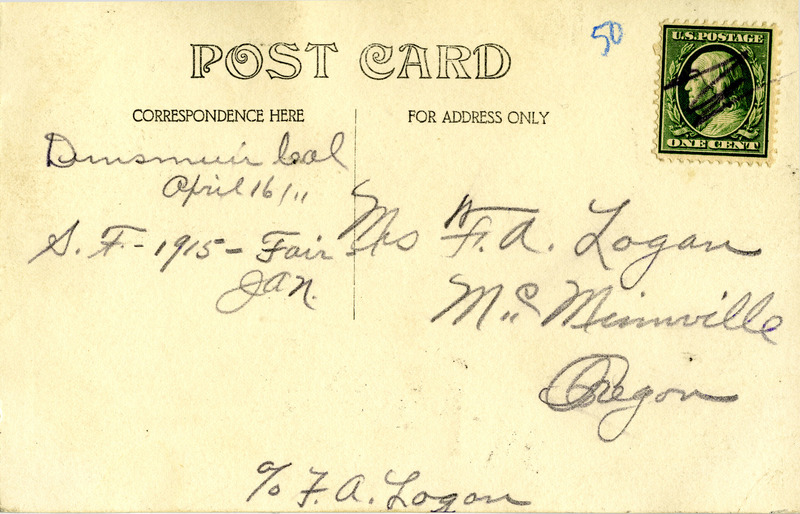 50
U.S. POSTAGE
ONE CENT
POST CARD
CORRESPONDENCE HERE
FOR ADDRESS ONLY
Dunsmuir Cal
April 16/11
S. F. - 1915 - Fair
Jan.
Mrs F. A. Logan
Mc Minnville
Oregon
c/o F. A. Logan